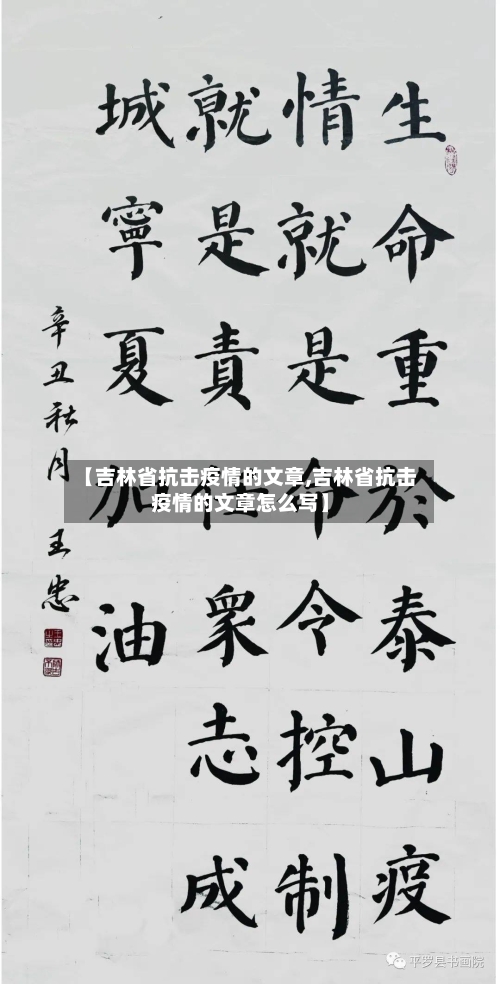 生命重於泰山疫
情就是命令控制
就是責任衆志成
城寧夏加油
辛丑秋月 王忠
【吉林省抗击疫情的文章,吉林省抗击
疫情的文章怎么写】
平罗县书画院